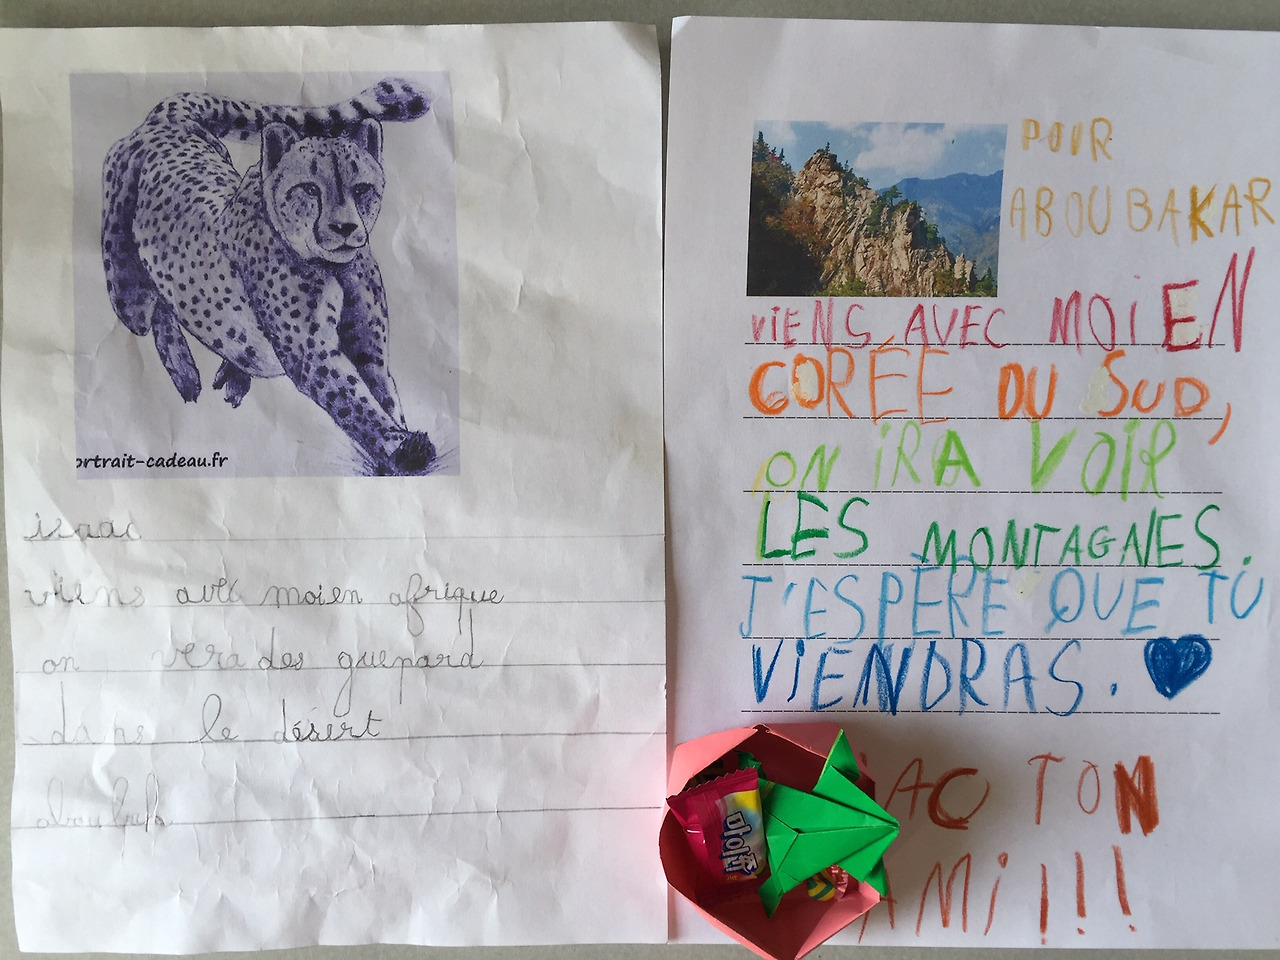 ortrait-cadeau.fr
isaac
viens avec moi en afrique
on vera des guepard
dans le désert
POUR
ABOUBAKAR
VIENS AVEC MOI EN
CORÉE DU SUD,
ON IRA VOIR
LES MONTAGNES.
J'ESPÈRE QUE TU
VIENDRAS.
AC TON
AMI !!!
마이쮸